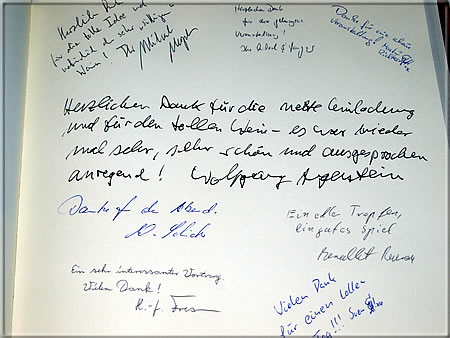 Herzlichen Dank
für die tolle Idee und
natürlich den sehr wichtigen
Wein! Ihr Michael
Herzlichen Dank
für die gelungene
Veranstaltung!
Danke für eine schöne
Veranstaltung!
Herzlichen Dank für die nette Einladung
und für den tollen Wein - es war wieder
mal sehr, sehr schön und ausgesprochen
anregend! Wolfgang Agerstein
Danke für den Abend.
Ein edler Tropfen,
ein gutes Spiel
Ein sehr interessanter Vortrag.
Vielen Dank!
H.-J.
Vielen Dank
für einen tollen
Tag!!! Sven